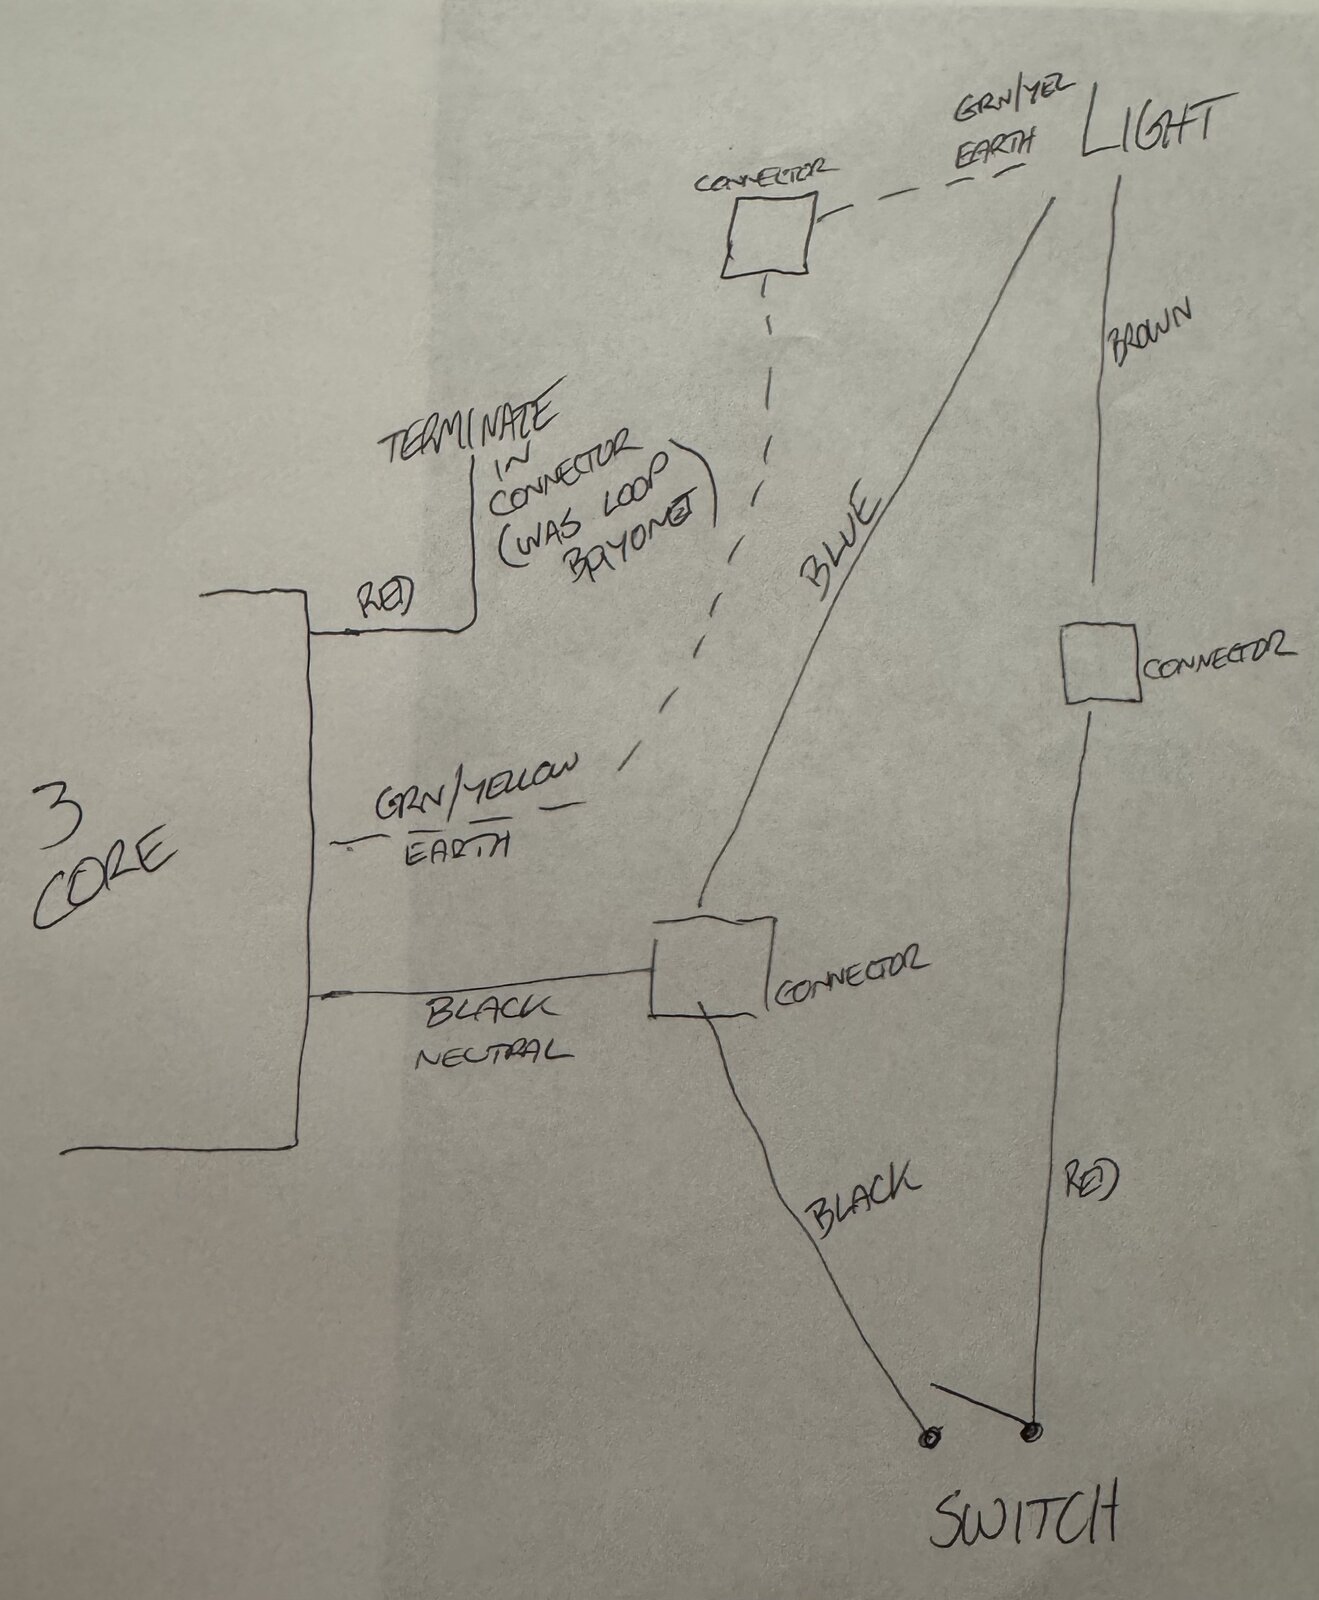 GRN/YEL
EARTH
LIGHT
CONNECTOR
BROWN
TERMINATE
IN
CONNECTOR
(WAS LOOP
BAYONET)
BLUE
RED
CONNECTOR
3
CORE
GRN/YELLOW
EARTH
CONNECTOR
BLACK
NEUTRAL
BLACK
RED
SWITCH